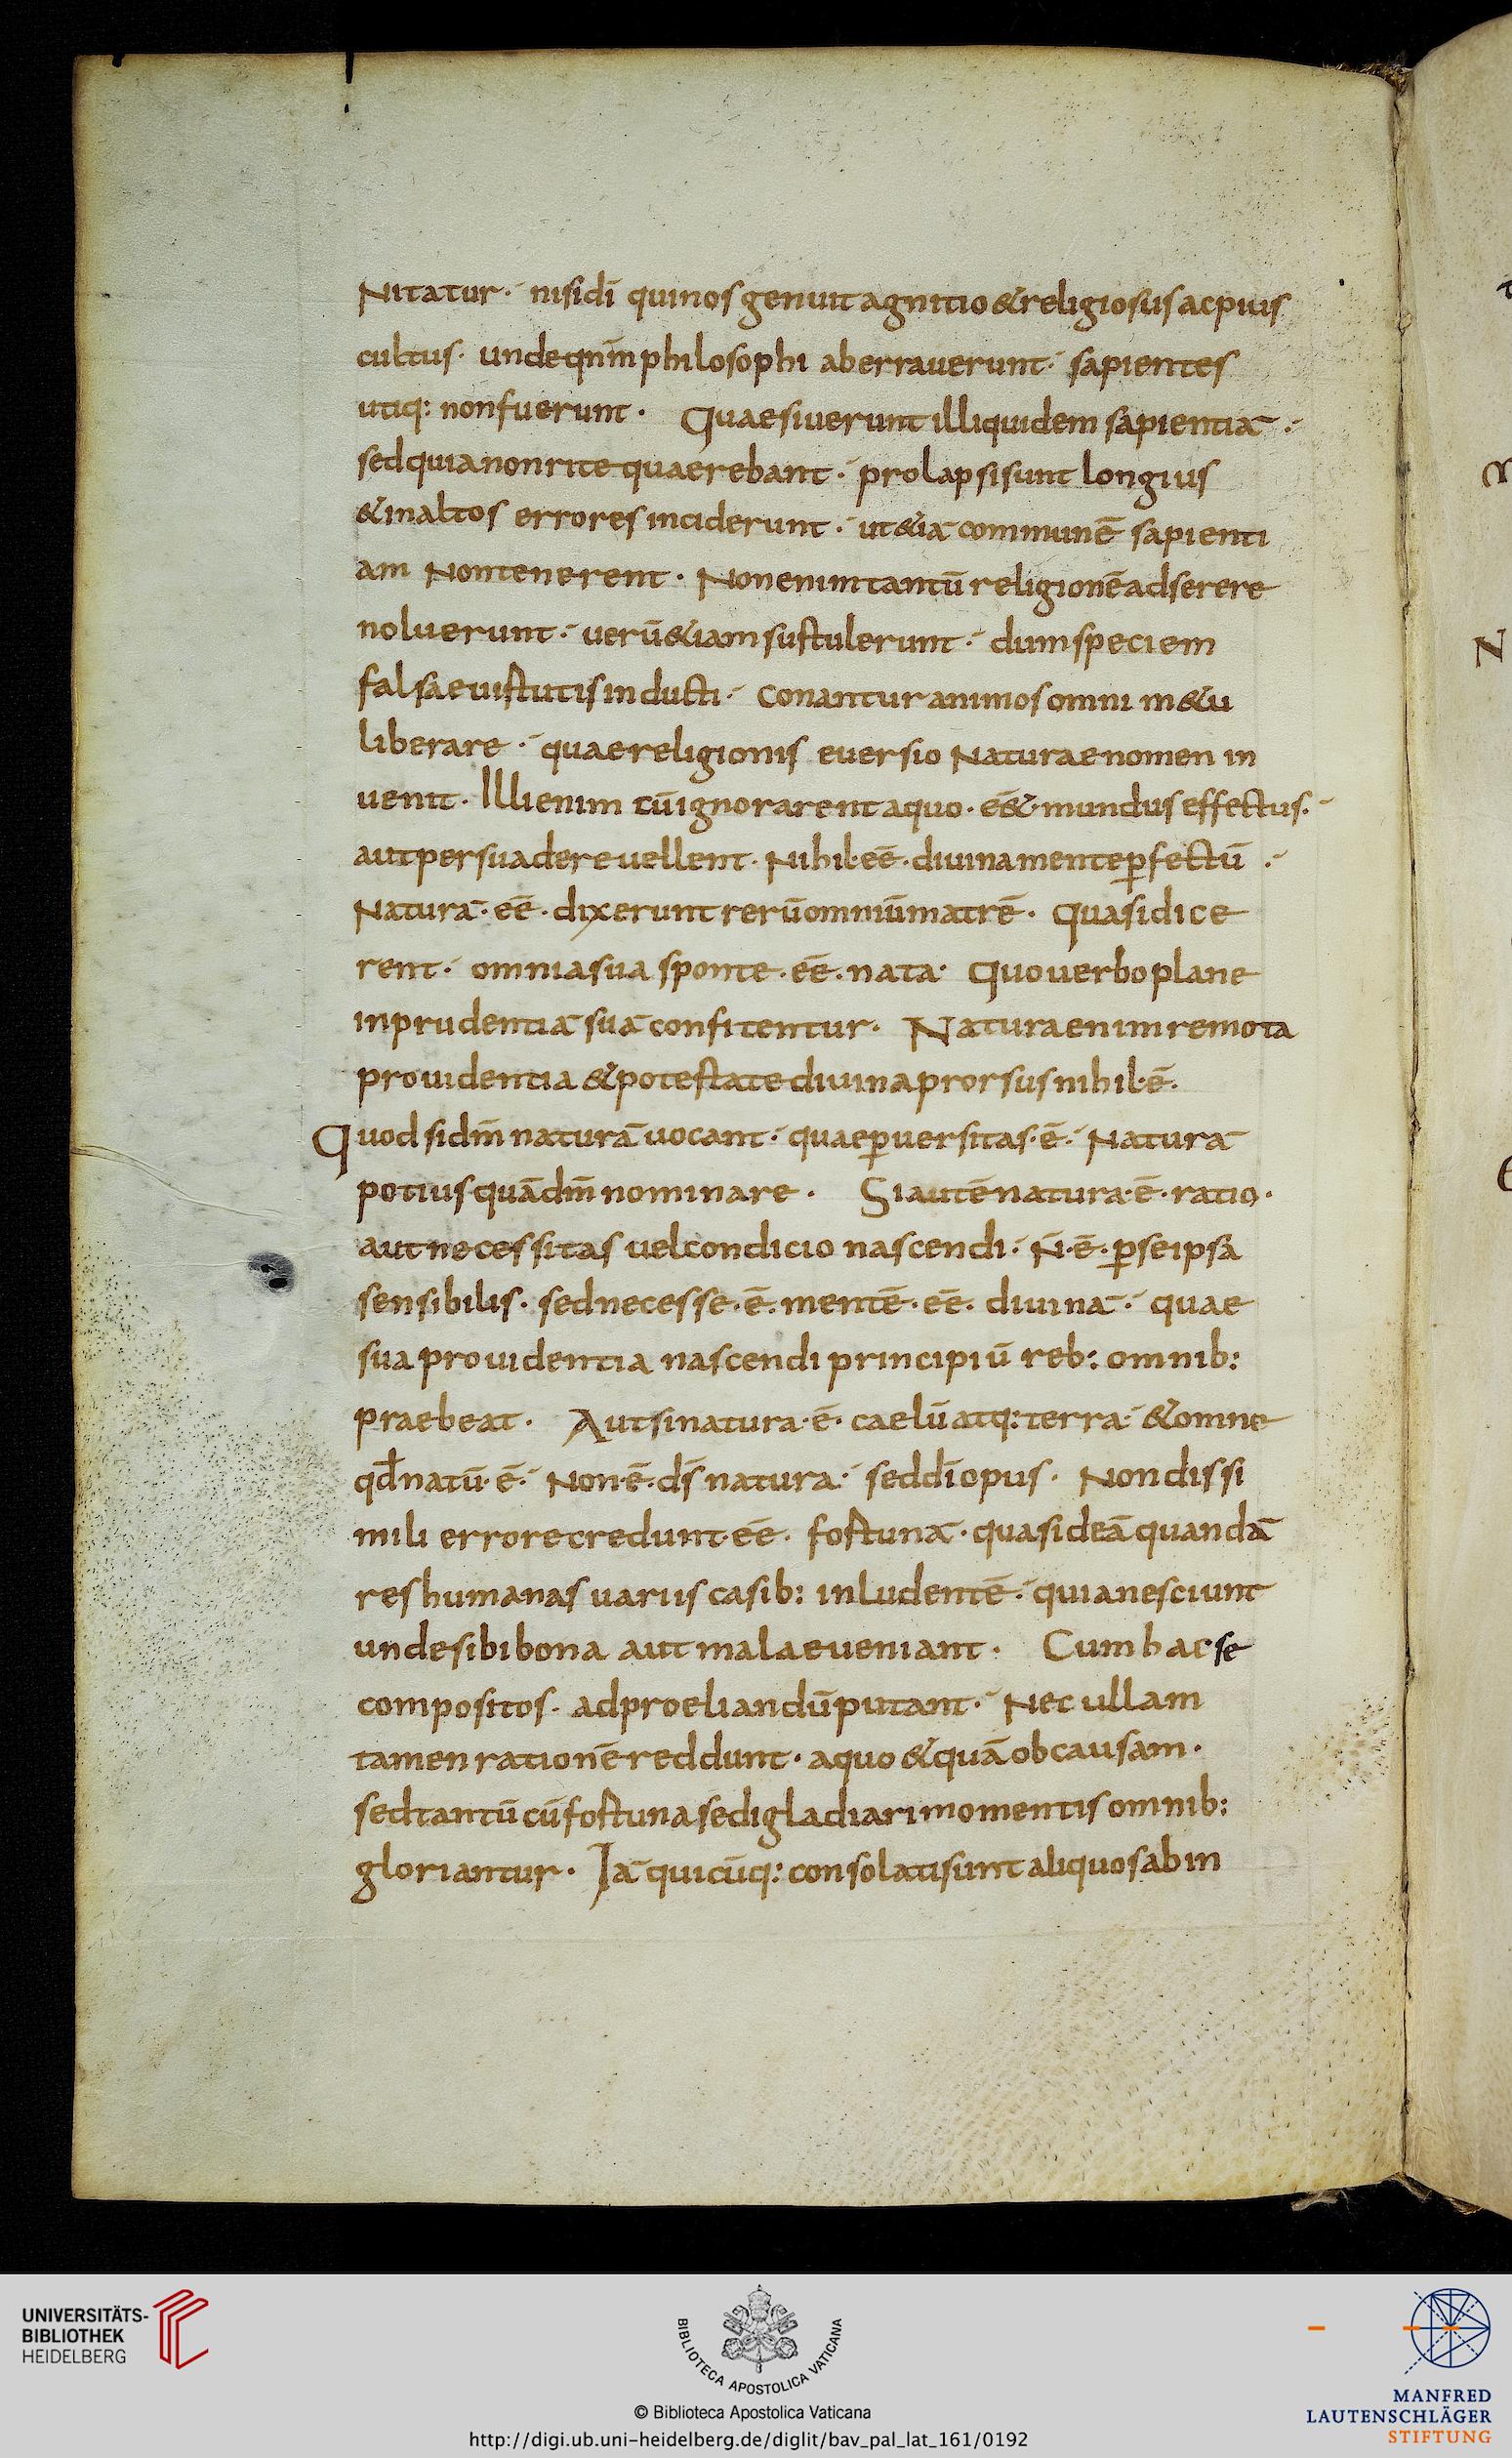 Nitatur· nisidī quinosgenuitagnitio&religiosusacpius
cultus· undeqnīmphilosophi aberrauerunt· sapientes
utiq: nonfuerunt· Quaesiuerunt illiquidem sapientiā·
sedquianonritequaerebant· prolapsisunt longius
&inaltos erroresinciderunt· ut&iā communē sapienti
am Nontenerent· Nonenimtantū religionēadserere
noluerunt· uerū&iamsustulerunt· dumspeciem
falsaeuirtutisinducti· Conanturanimosomni m&u
liberare· quaereligionis euersio Naturaenomen in
uenit· Illienim cūignorarentaquo·ēē&mundus effectus·
autpersuadereuellent· Nihil·ēē·diuinamentep̄fectū·
Naturā·ēē·dixeruntrerūomniūmatrē· Quasidice
rent· omniasua sponte·ēē·nata· Quouerboplane
inprudentiā suā confitentur· Naturaenimremota
prouidentia &potestatediuinaprorsusnihil·ē·
Quodsidm̄ naturā uocant· quaep̄uersitas·ē· Naturā
potiusquādm̄ nominare· Siautēnatura·ē·ratio·
autnecessitas uelcondicio nascendi· N̄·ē·p̄seipsā
sensibilis· sednecesse·ē·mentē·ēē· diuinā· quae
sua prouidentia nascendi principiū reb: omnib:
praebeat· Autsinatura·ē· caelūatq:terra· &omne
qd̄natū·ē· Non·ē·ds̄ natura· seddīopus· Nondissi
mili errorecredunt·ēē· fortunā· quasideāquandā
reshumanas uariis casib: inludentē· quianesciunt
undesibibona aut malaeueniant· Cumhacse
compositos· adproeliandūputant· Nec ullam
tamenrationēreddunt· aquo &quāobcausam·
sedtantū cūfortunasedigladiarimomentisomnib:
gloriantur· Iā quicūq: consolatisunt aliquosabin
UNIVERSITÄTS-
BIBLIOTHEK
HEIDELBERG
BIBLIOTECA APOSTOLICA VATICANA
© Biblioteca Apostolica Vaticana
http://digi.ub.uni-heidelberg.de/diglit/bav_pal_lat_161/0192
MANFRED
LAUTENSCHLÄGER
STIFTUNG